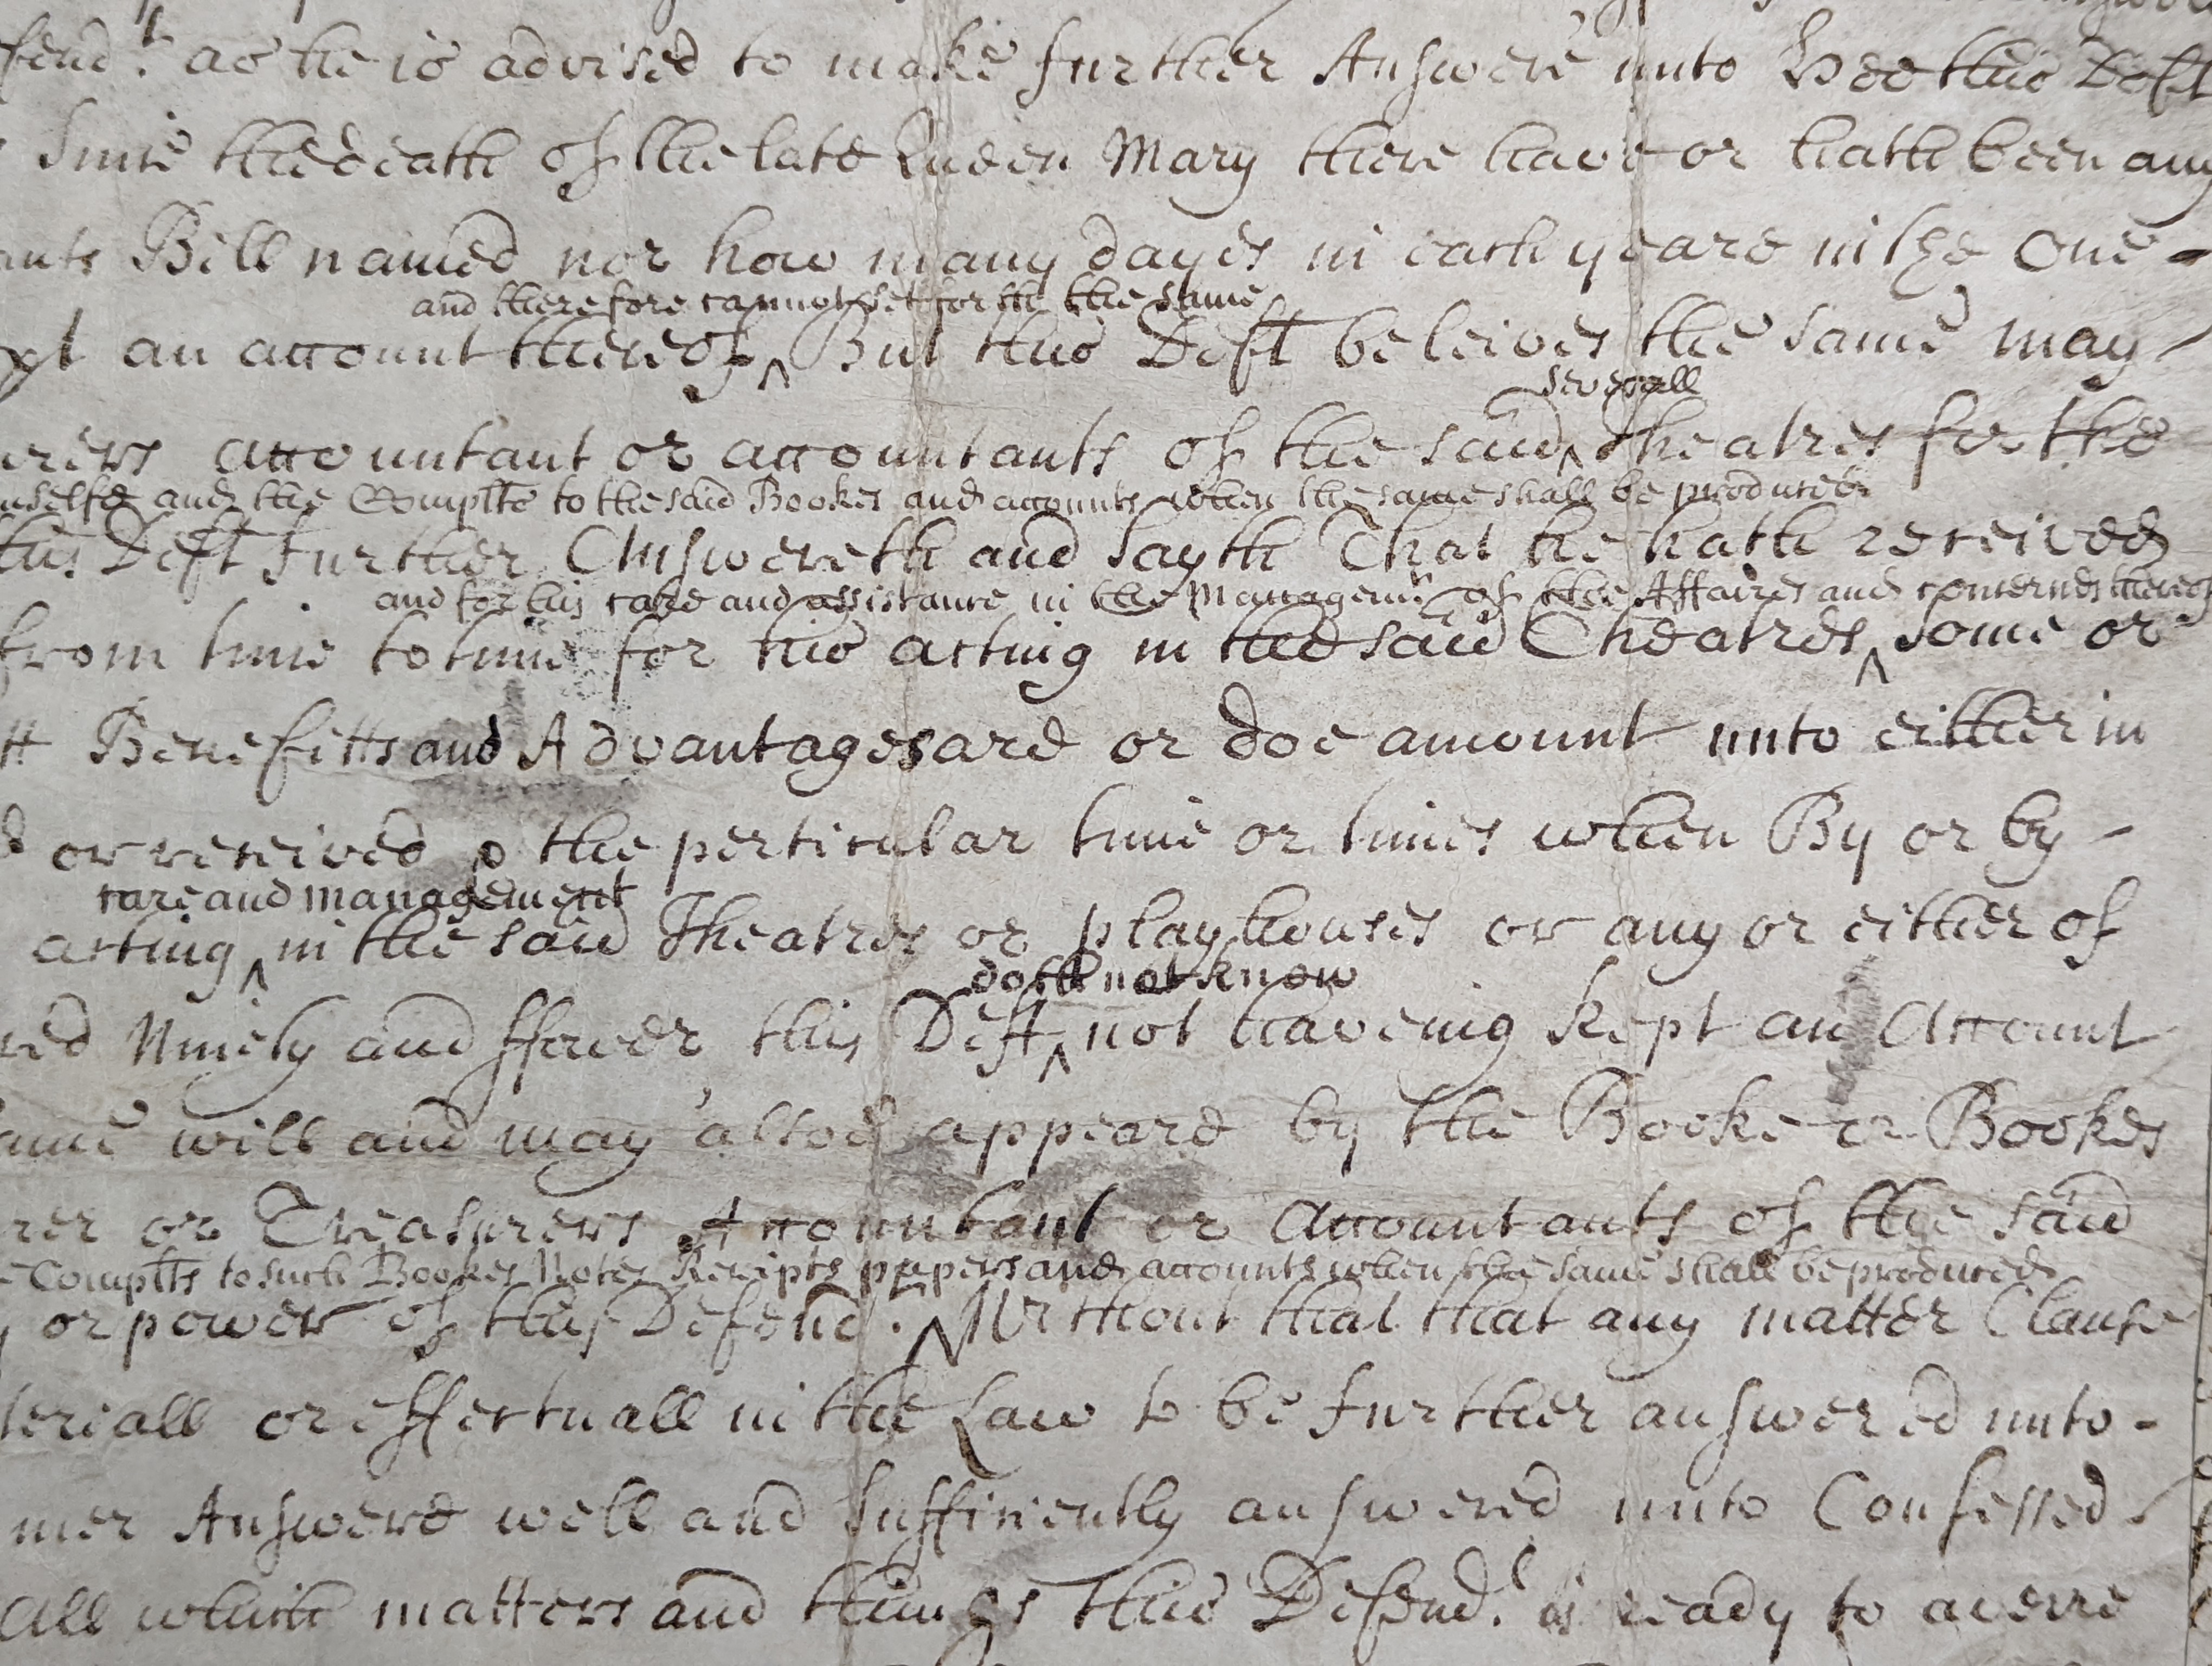 fend.t as he is advised to make further Answere unto Hee this Deft
Since the death of the late Queen Mary there have or hath been any
ants Bill named nor how many dayes in each yeare in the One -
and therefore cannot set forth the same
pt an account thereof ^ But this Deft beleives the same may -
severall
urers Accountant or accountants of the said ^ Theatres for the
mselfe and the Complts to the said Bookes and accounts when the same shall be produced
this Deft further Answereth and Sayth That he hath received
and for his care and assistance in the Managem.t of the Affaires and concernes thereof
from time to time for his acting in the said Theatres ^ some or
tt Benefitts and Advantages are or doe amount unto either in
d or received & the perticular time or times when By or by -
care and management
acting ^ in the said Theatres or playhouses or any or either of
doth not know
red Ninety and ffower this Deft ^ not haveing kept an Account
ame will and may alsoe appeare by the Booke or Bookes
rer or Treasurers Accountant or Accountants of the said
e Complts to such Bookes Notes Receipts papers and accounts when the same shall be produced
or power of this Defend.t ^ Without that that any matter Clause
tereall or effectuall in the Law to be further answered unto -
mer Answere well and sufficiently answered unto Confessed
All which matters and things this Defend.t is ready to averre